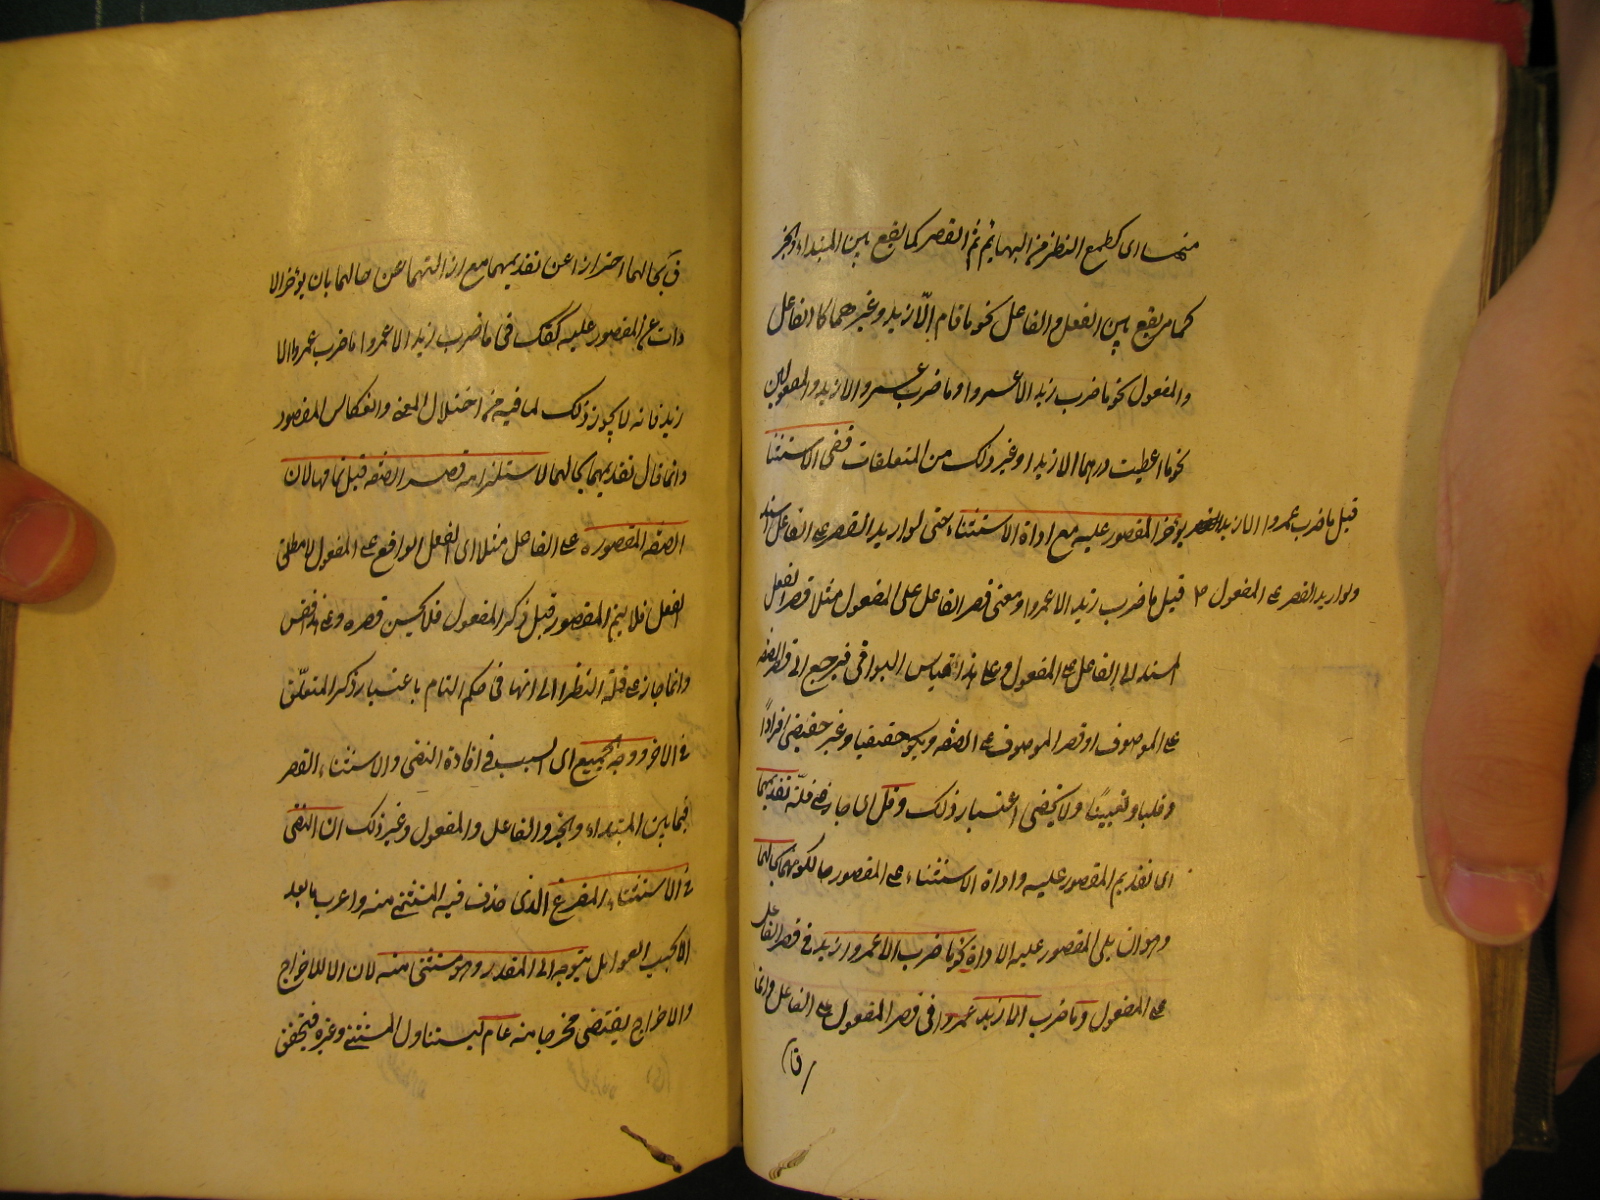 منهما اى كطمع النظر من البهايم ثم القصر كما يقع بين المبتداء والخبر
كما مر يقع بين الفعل والفاعل نحو ما قام الّا زيد وغيرهما كالفاعل
والمفعول نحو ما ضرب زيد الا عمروا وما ضرب عمروا الا زيد والمفعولين
نحو ما اعطيت درهما الا زيدا وغير ذلك من المتعلقات ففى الاستثنا
يؤخر المقصور عليه مع اداة الاستثناء حتى لو اريد القصر على الفاعل
قيل ما ضرب عمروا الا زيد
ولو اريد القصر على المفعول قيل ما ضرب زيد الا عمروا ومعنى قصر الفاعل على المفعول مثلا قصر الفعل
المسند الى الفاعل على المفعول وعلى هذا قياس البواقى فيرجع الى قصر الصفه
على الموصوف او قصر الموصوف على الصفه ويكون حقيقيا وغير حقيقى افرادًا
وقلبا وتعيينًا ولا يخفى اعتبار ذلك وقل اى جاز على قلّة تقديمهما
اى تقديم المقصور عليه واداة الاستثناء على المقصور حال كونهما بحالهما
وهو ان يلى المقصور عليه الاداة نحو ما ضرب الا عمروا زيد فى قصر الفاعل
على المفعول وما ضرب الا زيد عمروا فى قصر المفعول على الفاعل وانما
قال
بحالهما احترازا عن تقديمهما مع ازالتهما عن حالهما بان يؤخر الا
داة عن المقصور عليه كقولك فى ما ضرب زيد الا عمروا ما ضرب عمروا الا
زيد فانه لا يجوز ذلك لما فيه من اختلال المعنى وانعكاس المقصود
وانما قال تقديمهما بحالهما لاستلزامه قصر الصفه قبل تمامها لان
الصفه المقصوره على الفاعل مثلا اى الفعل الواقع على المفعول لا مطلق
الفعل فلا يتم المقصور قبل ذكر المفعول فلا يحسن قصره وعلى هذا فقس
وانما جاز على قلة النظرا الى انها فى حكم التام باعتبار ذكر المتعلّق
فى الاخر ووجه الجميع اى السبب فى افادة النفى والاستثناء القصر
فيما بين المبتداء والخبر والفاعل والمفعول وغير ذلك ان النفى
فى الاستثناء المفرغ الذى حذف فيه المستثنى منه واعرب ما بعد
الا بحسب العوامل يتوجه الى المقدر وهو مستثنى منه لان الا للاخراج
والاخراج يقتضى مخرجا منه عام ليتناول المستثنى وغيره فيتحقق